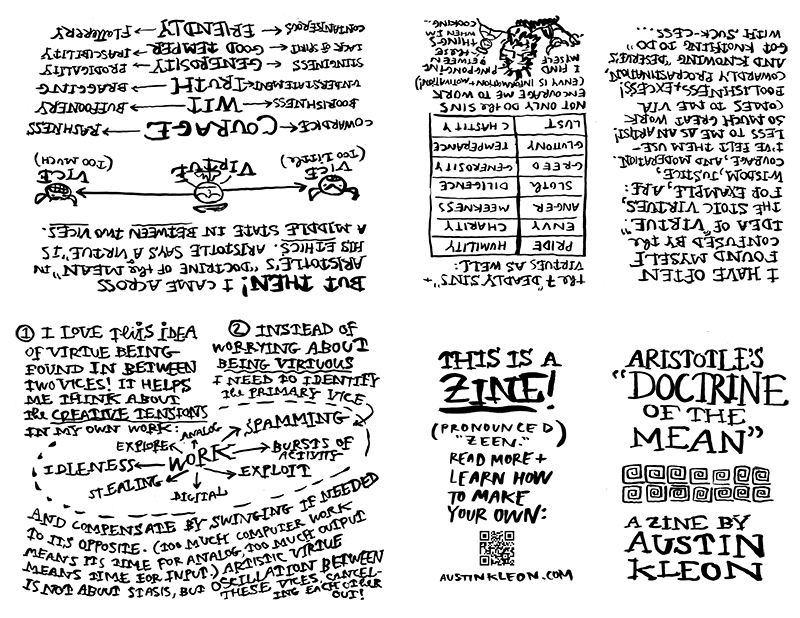 ARISTOTLE'S
"DOCTRINE
OF THE
MEAN"
A ZINE BY
AUSTIN
KLEON
I HAVE OFTEN
FOUND MYSELF
CONFUSED BY the
IDEA OF "VIRTUE."
THE STOIC VIRTUES,
FOR EXAMPLE, ARE:
WISDOM, JUSTICE,
COURAGE, AND MODERATION.
I'VE FELT THEM USE-
LESS TO ME AS AN ARTIST!
SO MUCH GREAT WORK
COMES TO ME VIA
FOOLISHNESS + EXCESS!
COWARDLY PROCRASTINATION,
AND KNOWING AND "DESERVE'S
GOT KNOTHING TO DO"
WITH SUCK-CESS.
the 7 "DEADLY SINS" +
VIRTUES AS WELL:
PRIDE HUMILITY
ENVY CHARITY
ANGER MEEKNESS
SLOTH DILIGENCE
GREED GENEROSITY
GLUTONY TEMPERANCE
LUST CHASTITY
NOT ONLY DO the SINS
ENCOURAGE ME TO WORK
(ENVY IS INFORMATION + MOTIVATION!)
I FIND
MYSELF
PING-PONGING
BETWEEN
THESE
THINGS
WHEN I'M
COOKING...
BUT THEN! I CAME ACROSS
ARISTOTLE'S "DOCTRINE OF the MEAN" IN
HIS ETHICS. ARISTOTLE SAYS A VIRTUE "IS
A MIDDLE STATE IN BETWEEN TWO VICES.
VICE VIRTUE VICE
(TOO LITTLE) (TOO MUCH)
COWARDICE COURAGE RASHNESS
BOORISHNESS WIT BUFFOONERY
UNDERSTATEMENT TRUTH BRAGGING
STINGINESS GENEROSITY PRODIGALITY
LACK OF SPIRIT GOOD TEMPER IRASCIBILITY
CONTANKEROUS FRIENDLY FLATTERY
① I LOVE this IDEA
OF VIRTUE BEING
FOUND IN BETWEEN
TWO VICES! IT HELPS
ME THINK ABOUT
the CREATIVE TENSIONS
IN MY OWN WORK:
② INSTEAD OF
WORRYING ABOUT
BEING VIRTUOUS
I NEED TO IDENTIFY
the PRIMARY VICE
ANALOG SPAMMING
EXPLORE
IDLENESS WORK BURSTS OF
ACTIVITY
STEALING EXPLOIT
DIGITAL
AND COMPENSATE BY SWINGING IF NEEDED
TO ITS OPPOSITE. (TOO MUCH COMPUTER WORK
MEANS ITS TIME FOR ANALOG, TOO MUCH OUTPUT
MEANS TIME FOR INPUT.) ARTISTIC VIRTUE
IS NOT ABOUT STASIS, BUT OSCILLATION BETWEEN
THESE VICES, CANCEL-
ING EACH OTHER
OUT!
THIS IS A
ZINE!
(PRONOUNCED
"ZEEN.")
READ MORE +
LEARN HOW
TO MAKE
YOUR OWN:
AUSTINKLEON.COM